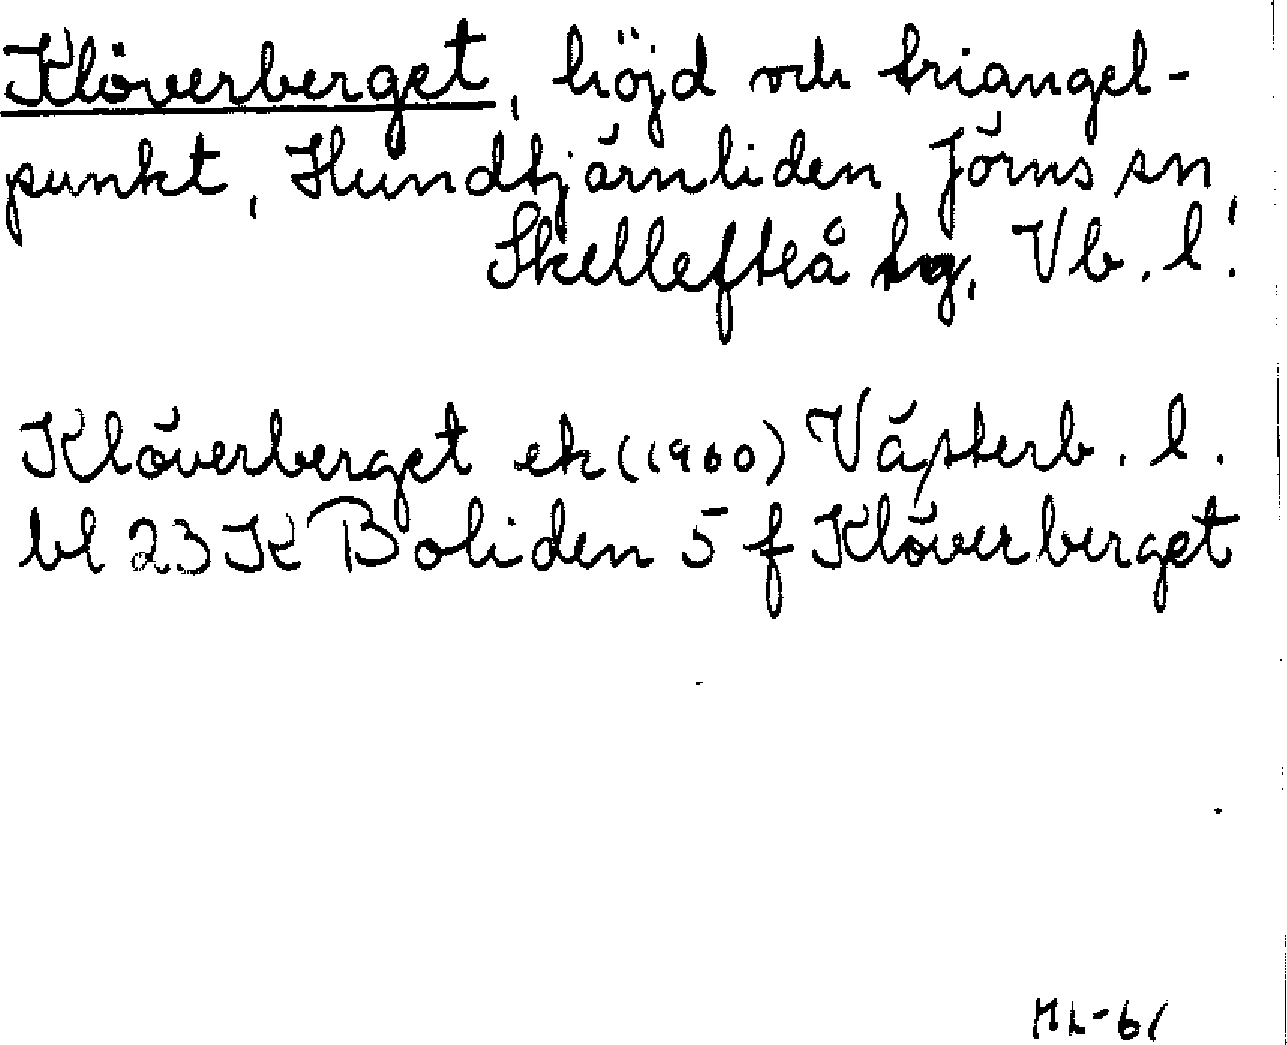 Klöverberget, höjd och triangel-
punkt, Hundtjärnliden, Jörns sn,
Skellefteå tg, Vb. l.
Klöverberget ek (1960) Västerb. l.
bl 23 K Boliden 5 f Klöverberget
HL-61